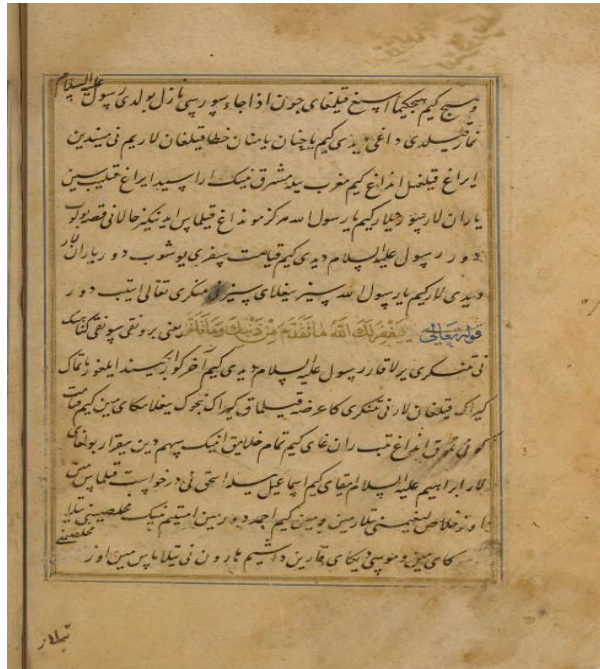 و هیچ کیم هیچکیما آسیغ قیلغای چون اذا جاء سوره سی نازل بولدی رسول علیه السلام
نماز قیلدی داغی دیدی کیم یا حنان یا منان خطا قیلغان لاریم نی میندین
ایراغ قیلغل انداغ کیم مغرب بیله مشرق نینک اراسیدا ایراغ قیلیب سین
یاران لار سوردیلار کیم یا رسول الله هرکز مونداغ قیلماس ایدینکیز حالا نی قصه بولوب
دور رسول علیه السلام دیدی کیم قیامت سفری یوشوب دور یاران لار
دیدی لار کیم یا رسول الله سیز یغلای سیز نی تنکری تعالی ایتیب دور
قوله تعالی لیغفر لک الله ما تقدم من ذنبک وما تأخر یعنی برونقی سونقی کناهینک
نی تنکری یرلاقار رسول علیه السلام دیدی کیم آخر کور یاتماق
کیراک قیلغان لارنی تنکری کا عرضه قیلماق کیراک نجوک یغلامکای مین کیم قیامت
کونی انداغ کیم تمام خلایق انینک سهم دین بیقرار بولغای
لار ابراهیم علیه السلام ایتقای کیم اسماعیل بیله اسحق نی درخواست قیلماس مین
اوز خلاص لیغیمنی تیلارمین و مین کیم احمد دورمین امتیم نینک مخلصینی تیلا
کای مین و موسی دیکای قارین داشیم هارون نی تیلاماس مین اوز
تیلار